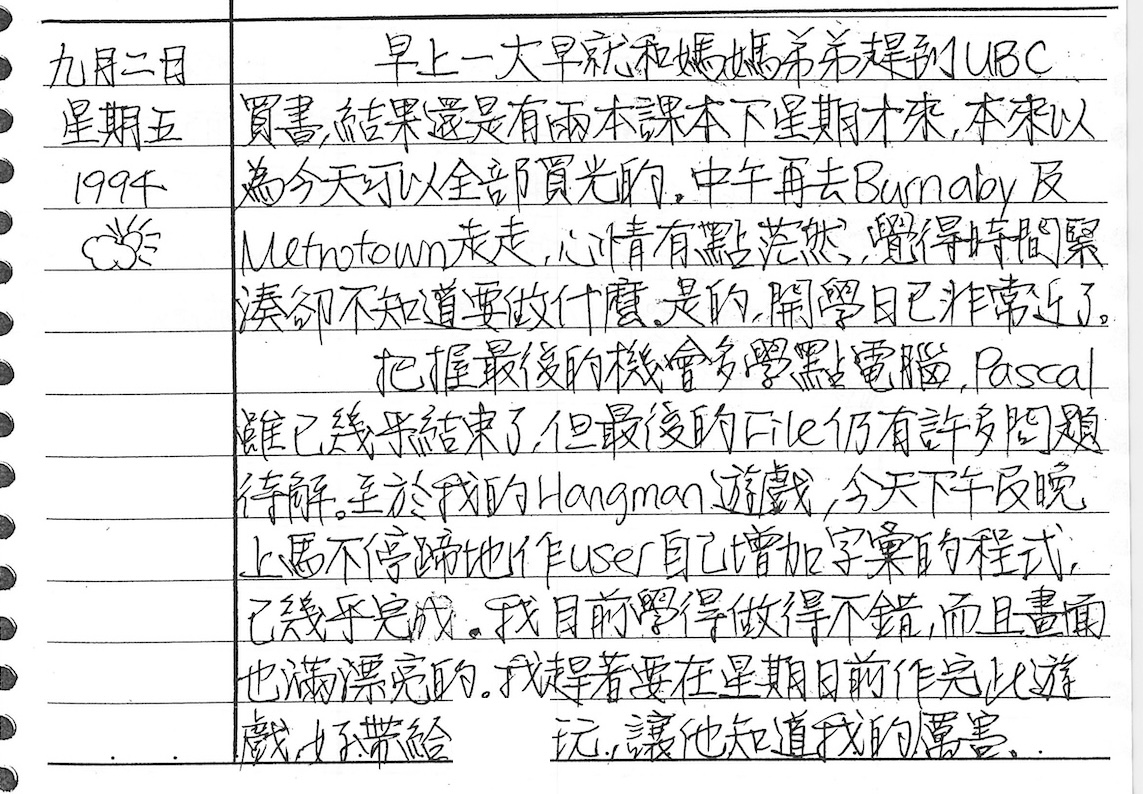 九月二日
星期五
1994
早上一大早就和媽媽弟弟趕到UBC
買書,結果還是有兩本課本下星期才來,本來以
為今天可以全部買光的。中午再去Burnaby及
Metrotown走走,心情有點茫然,覺得時間緊
湊卻不知道要做什麼。是的,開學日已非常近了。
把握最後的機會多學點電腦,Pascal
雖已幾乎結束了,但最後的File仍有許多問題
待解。至於我的Hangman遊戲,今天下午及晚
上馬不停蹄地作user自己增加字彙的程式,
已幾乎完成。我目前學得做得不錯,而且畫面
也滿漂亮的。我趕著要在星期日前作完此遊
戲,好帶給 玩,讓他知道我的厲害。